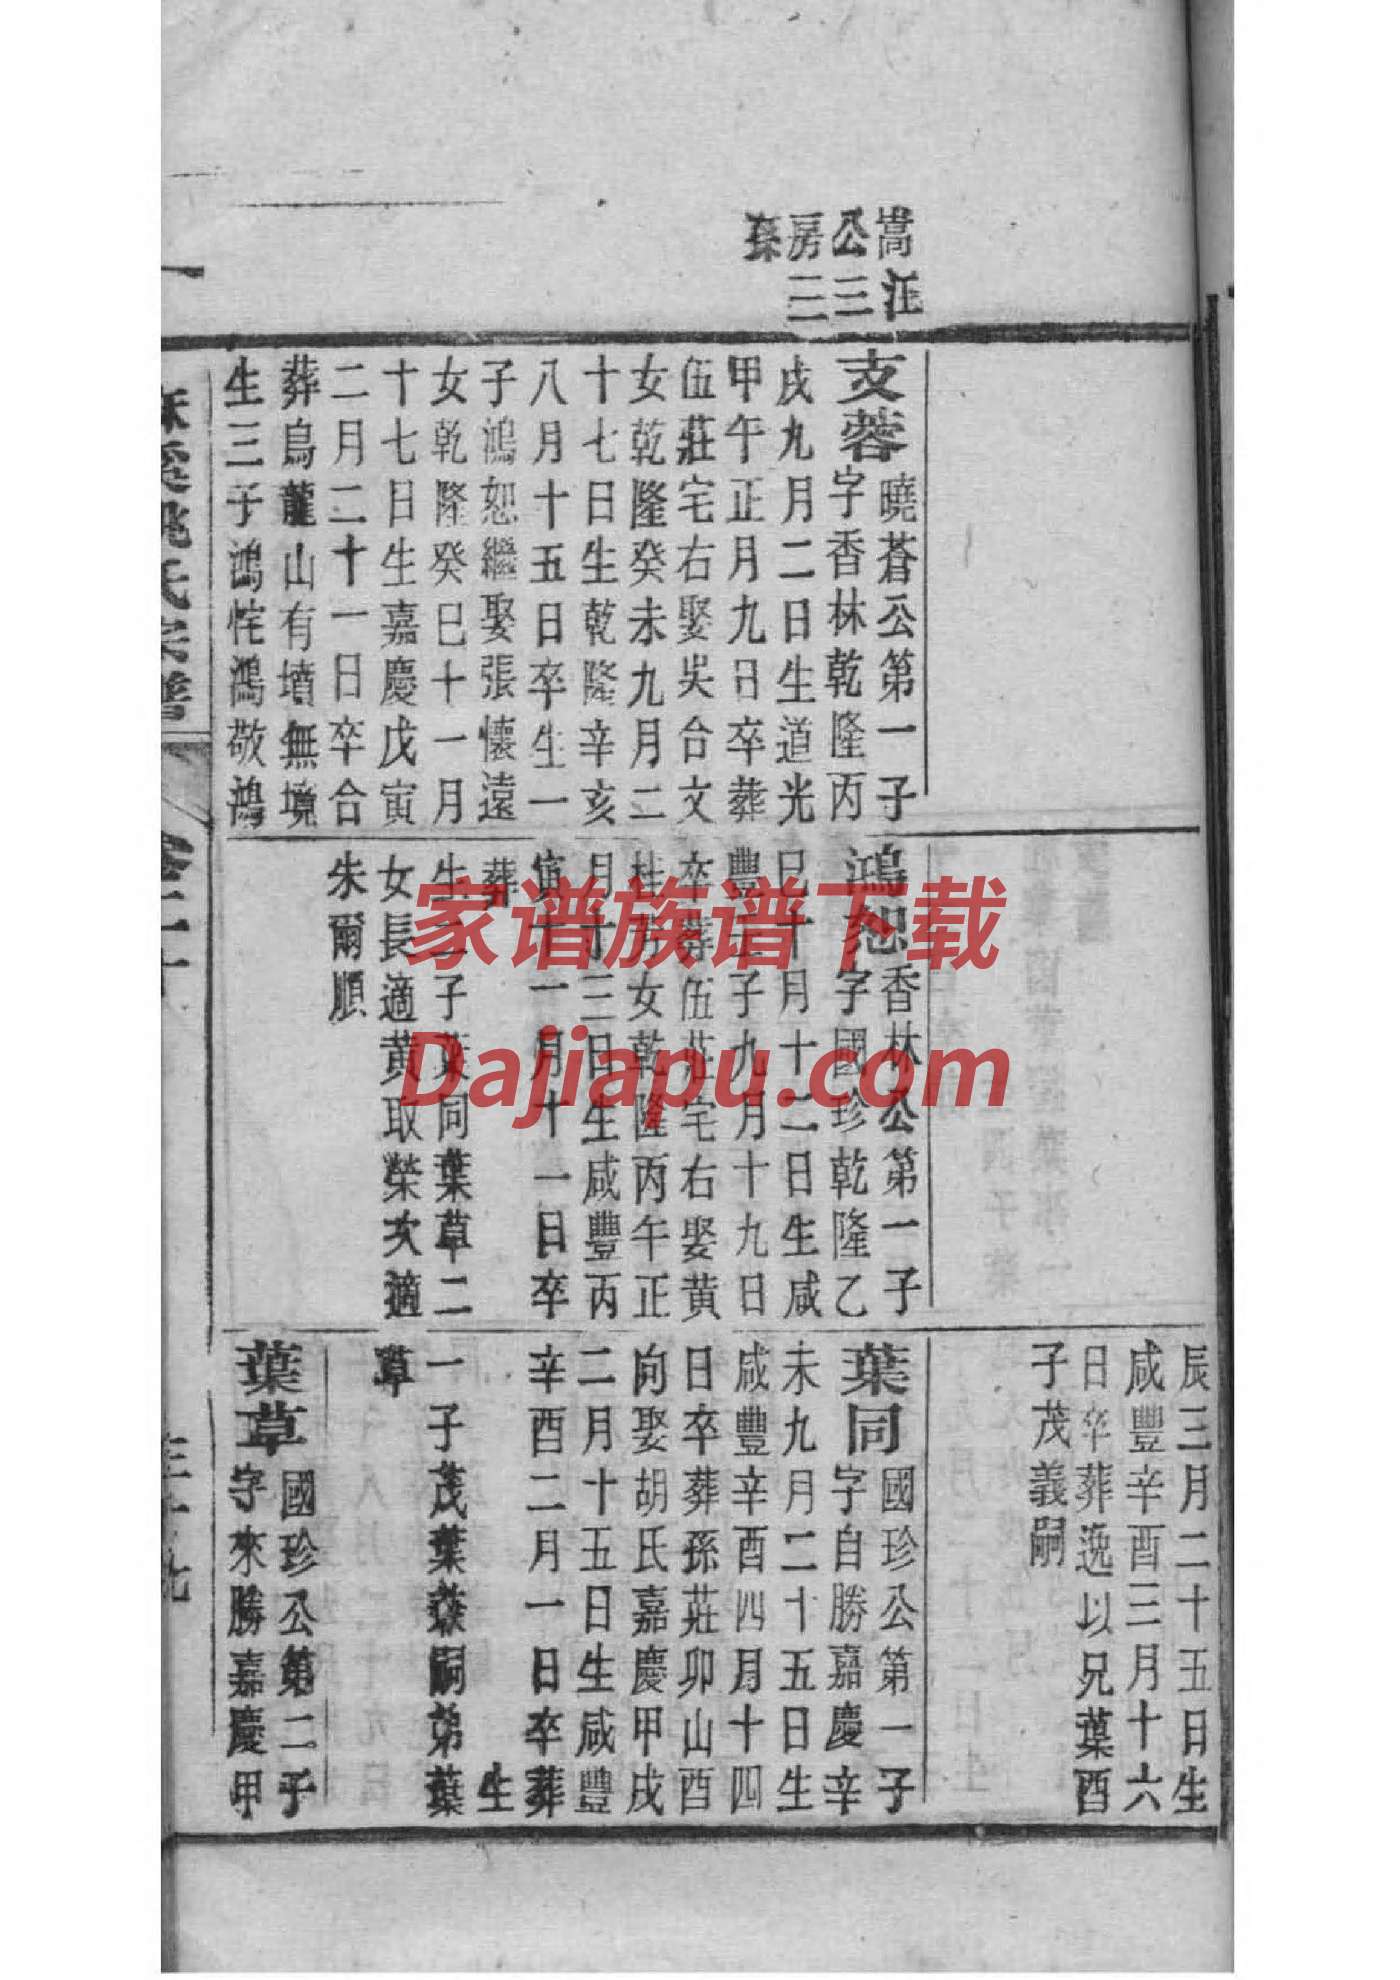 嵩江
公三
房三
孫
支蓉
曉蒼公第一子
字香林乾隆丙
戌九月二日生道光
甲午正月九日卒葬
伍莊宅右娶吳合文
女乾隆癸未九月二
十七日生乾隆辛亥
八月十五日卒生一
子鴻恕繼娶張懷遠
女乾隆癸巳十一月
十七日生嘉慶戊寅
二月二十一日卒合
葬烏龍山有墳無境
生三子鴻恠鴻敬鴻
鴻恕
香林公第一子
字國珍乾隆乙
巳十月十二日生咸
豐壬子九月十九日
卒葬伍莊宅右娶黃
桂芳女乾隆丙午正
月十三日生咸豐丙
寅十一月十一日卒
葬
生二子葉同葉草二
女長適黃取榮次適
朱爾順
辰三月二十五日生
咸豐辛酉三月十六
日卒葬逸以兄葉酉
子茂義嗣
葉同
國珍公第一子
字自勝嘉慶辛
未九月二十五日生
咸豐辛酉四月十四
日卒葬孫莊卯山酉
向娶胡氏嘉慶甲戌
二月十五日生咸豐
辛酉二月一日卒葬
生
一子茂葉森嗣弟葉
草
葉草
國珍公第二子
字來勝嘉慶甲
姚氏宗譜
家谱族谱下载
Dajiapu.com